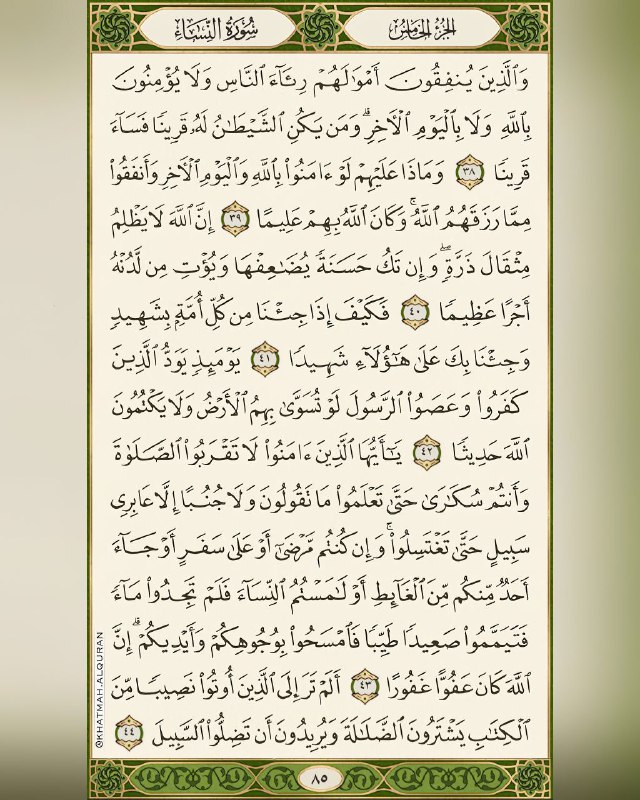 الجزء الخامس
سورة النساء
وَٱلَّذِينَ يُنفِقُونَ أَمْوَٰلَهُمْ رِئَآءَ ٱلنَّاسِ وَلَا يُؤْمِنُونَ
بِٱللَّهِ وَلَا بِٱلْيَوْمِ ٱلْـَٔاخِرِ ۗ وَمَن يَكُنِ ٱلشَّيْطَـٰنُ لَهُۥ قَرِينًا فَسَآءَ
قَرِينًا ٣٨ وَمَاذَا عَلَيْهِمْ لَوْ ءَامَنُوا۟ بِٱللَّهِ وَٱلْيَوْمِ ٱلْـَٔاخِرِ وَأَنفَقُوا۟
مِمَّا رَزَقَهُمُ ٱللَّهُ ۚ وَكَانَ ٱللَّهُ بِهِمْ عَلِيمًا ٣٩ إِنَّ ٱللَّهَ لَا يَظْلِمُ
مِثْقَالَ ذَرَّةٍ ۖ وَإِن تَكُ حَسَنَةً يُضَـٰعِفْهَا وَيُؤْتِ مِن لَّدُنْهُ
أَجْرًا عَظِيمًا ٤٠ فَكَيْفَ إِذَا جِئْنَا مِن كُلِّ أُمَّةٍۭ بِشَهِيدٍ
وَجِئْنَا بِكَ عَلَىٰ هَـٰٓؤُلَآءِ شَهِيدًا ٤١ يَوْمَئِذٍ يَوَدُّ ٱلَّذِينَ
كَفَرُوا۟ وَعَصَوُا۟ ٱلرَّسُولَ لَوْ تُسَوَّىٰ بِهِمُ ٱلْأَرْضُ وَلَا يَكْتُمُونَ
ٱللَّهَ حَدِيثًا ٤٢ يَـٰٓأَيُّهَا ٱلَّذِينَ ءَامَنُوا۟ لَا تَقْرَبُوا۟ ٱلصَّلَوٰةَ
وَأَنتُمْ سُكَـٰرَىٰ حَتَّىٰ تَعْلَمُوا۟ مَا تَقُولُونَ وَلَا جُنُبًا إِلَّا عَابِرِى
سَبِيلٍ حَتَّىٰ تَغْتَسِلُوا۟ ۚ وَإِن كُنتُم مَّرْضَىٰٓ أَوْ عَلَىٰ سَفَرٍ أَوْ جَآءَ
أَحَدٌ مِّنكُم مِّنَ ٱلْغَآئِطِ أَوْ لَـٰمَسْتُمُ ٱلنِّسَآءَ فَلَمْ تَجِدُوا۟ مَآءً
فَتَيَمَّمُوا۟ صَعِيدًا طَيِّبًا فَٱمْسَحُوا۟ بِوُجُوهِكُمْ وَأَيْدِيكُمْ ۗ إِنَّ
ٱللَّهَ كَانَ عَفُوًّا غَفُورًا ٤٣ أَلَمْ تَرَ إِلَى ٱلَّذِينَ أُوتُوا۟ نَصِيبًا مِّنَ
ٱلْكِتَـٰبِ يَشْتَرُونَ ٱلضَّلَـٰلَةَ وَيُرِيدُونَ أَن تَضِلُّوا۟ ٱلسَّبِيلَ ٤٤
٨٥
@KHATMAH.ALQURAN